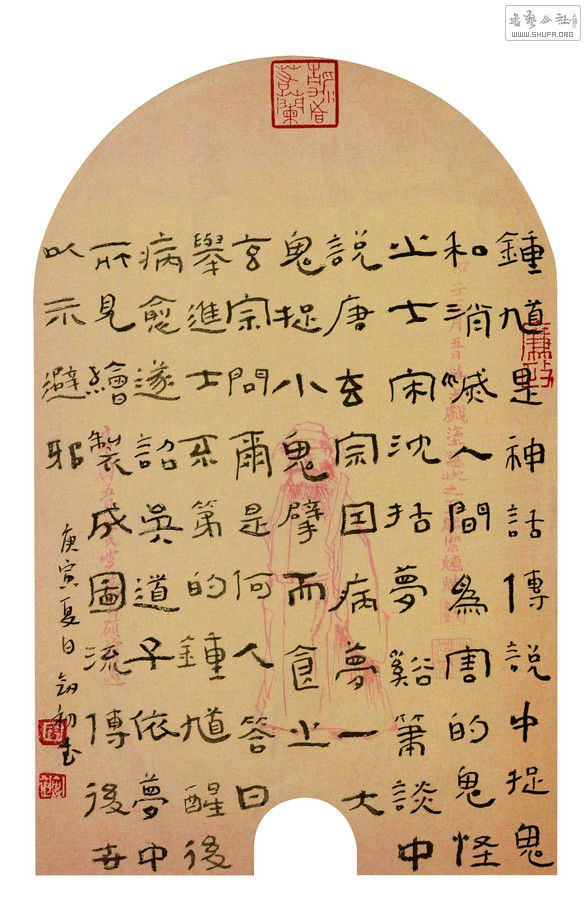 鍾馗是神話傳說中捉鬼
和消滅人間為害的鬼怪
之士宋沈括夢谿筆談中
說唐玄宗因病夢一大
鬼捉小鬼擘而食之
玄宗問爾是何人答曰
舉進士不第的鍾馗醒後
病愈遂詔吳道子依夢中
所見繪製成圖流傳後世
以示避邪
庚寅夏日
書藝公社
WWW.SHUFA.ORG